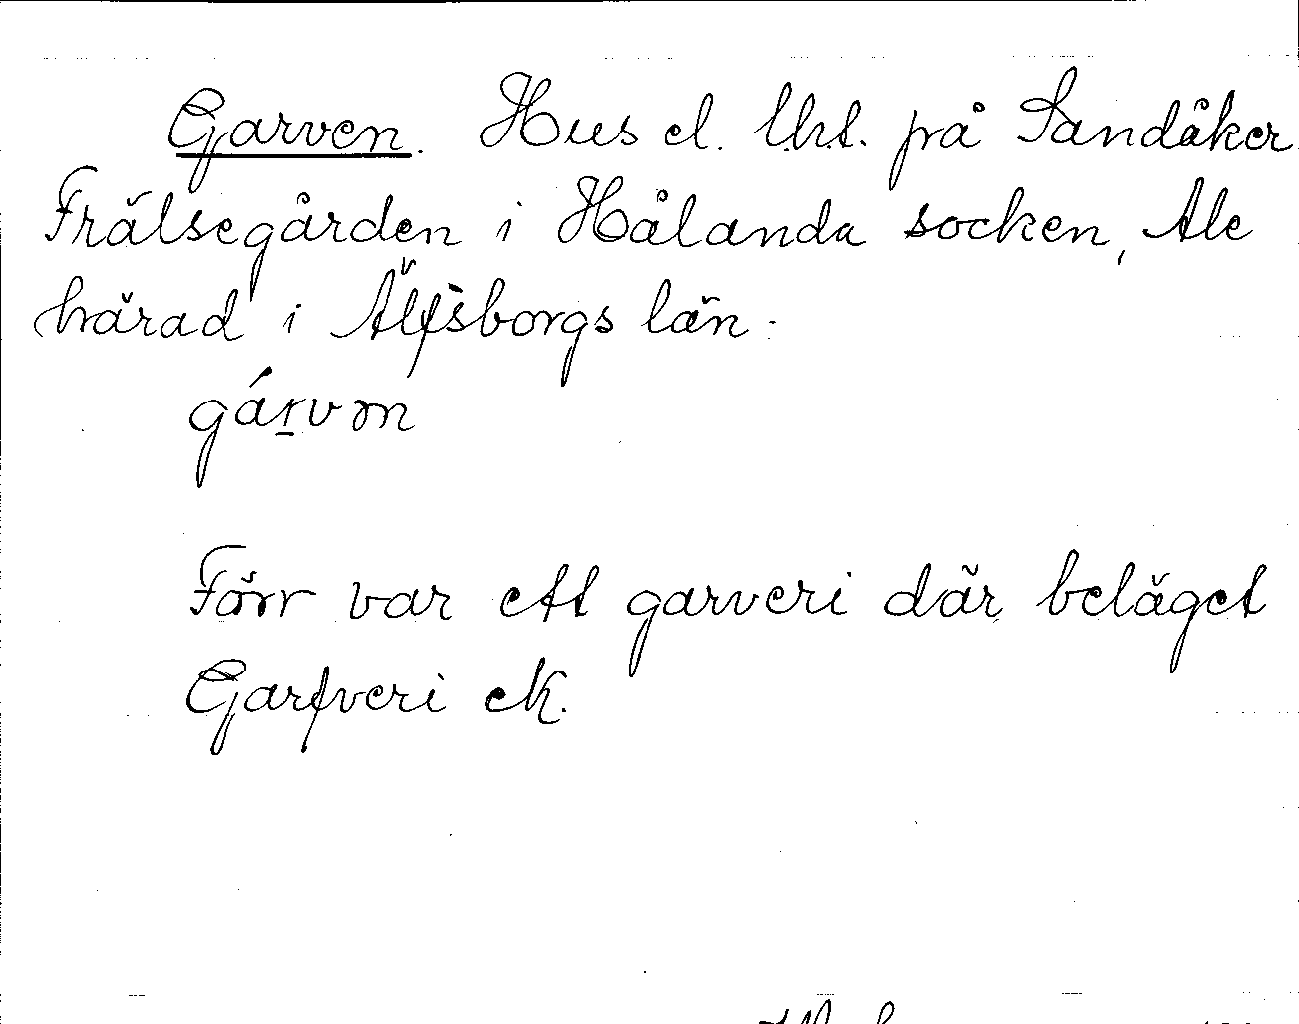 Garven. Hus el. lht. på Sandåker
Frälsegården i Hålanda socken, Ale
härad i Älfsborgs län.
gárvm
Förr var ett garveri där beläget
Garfveri eK.